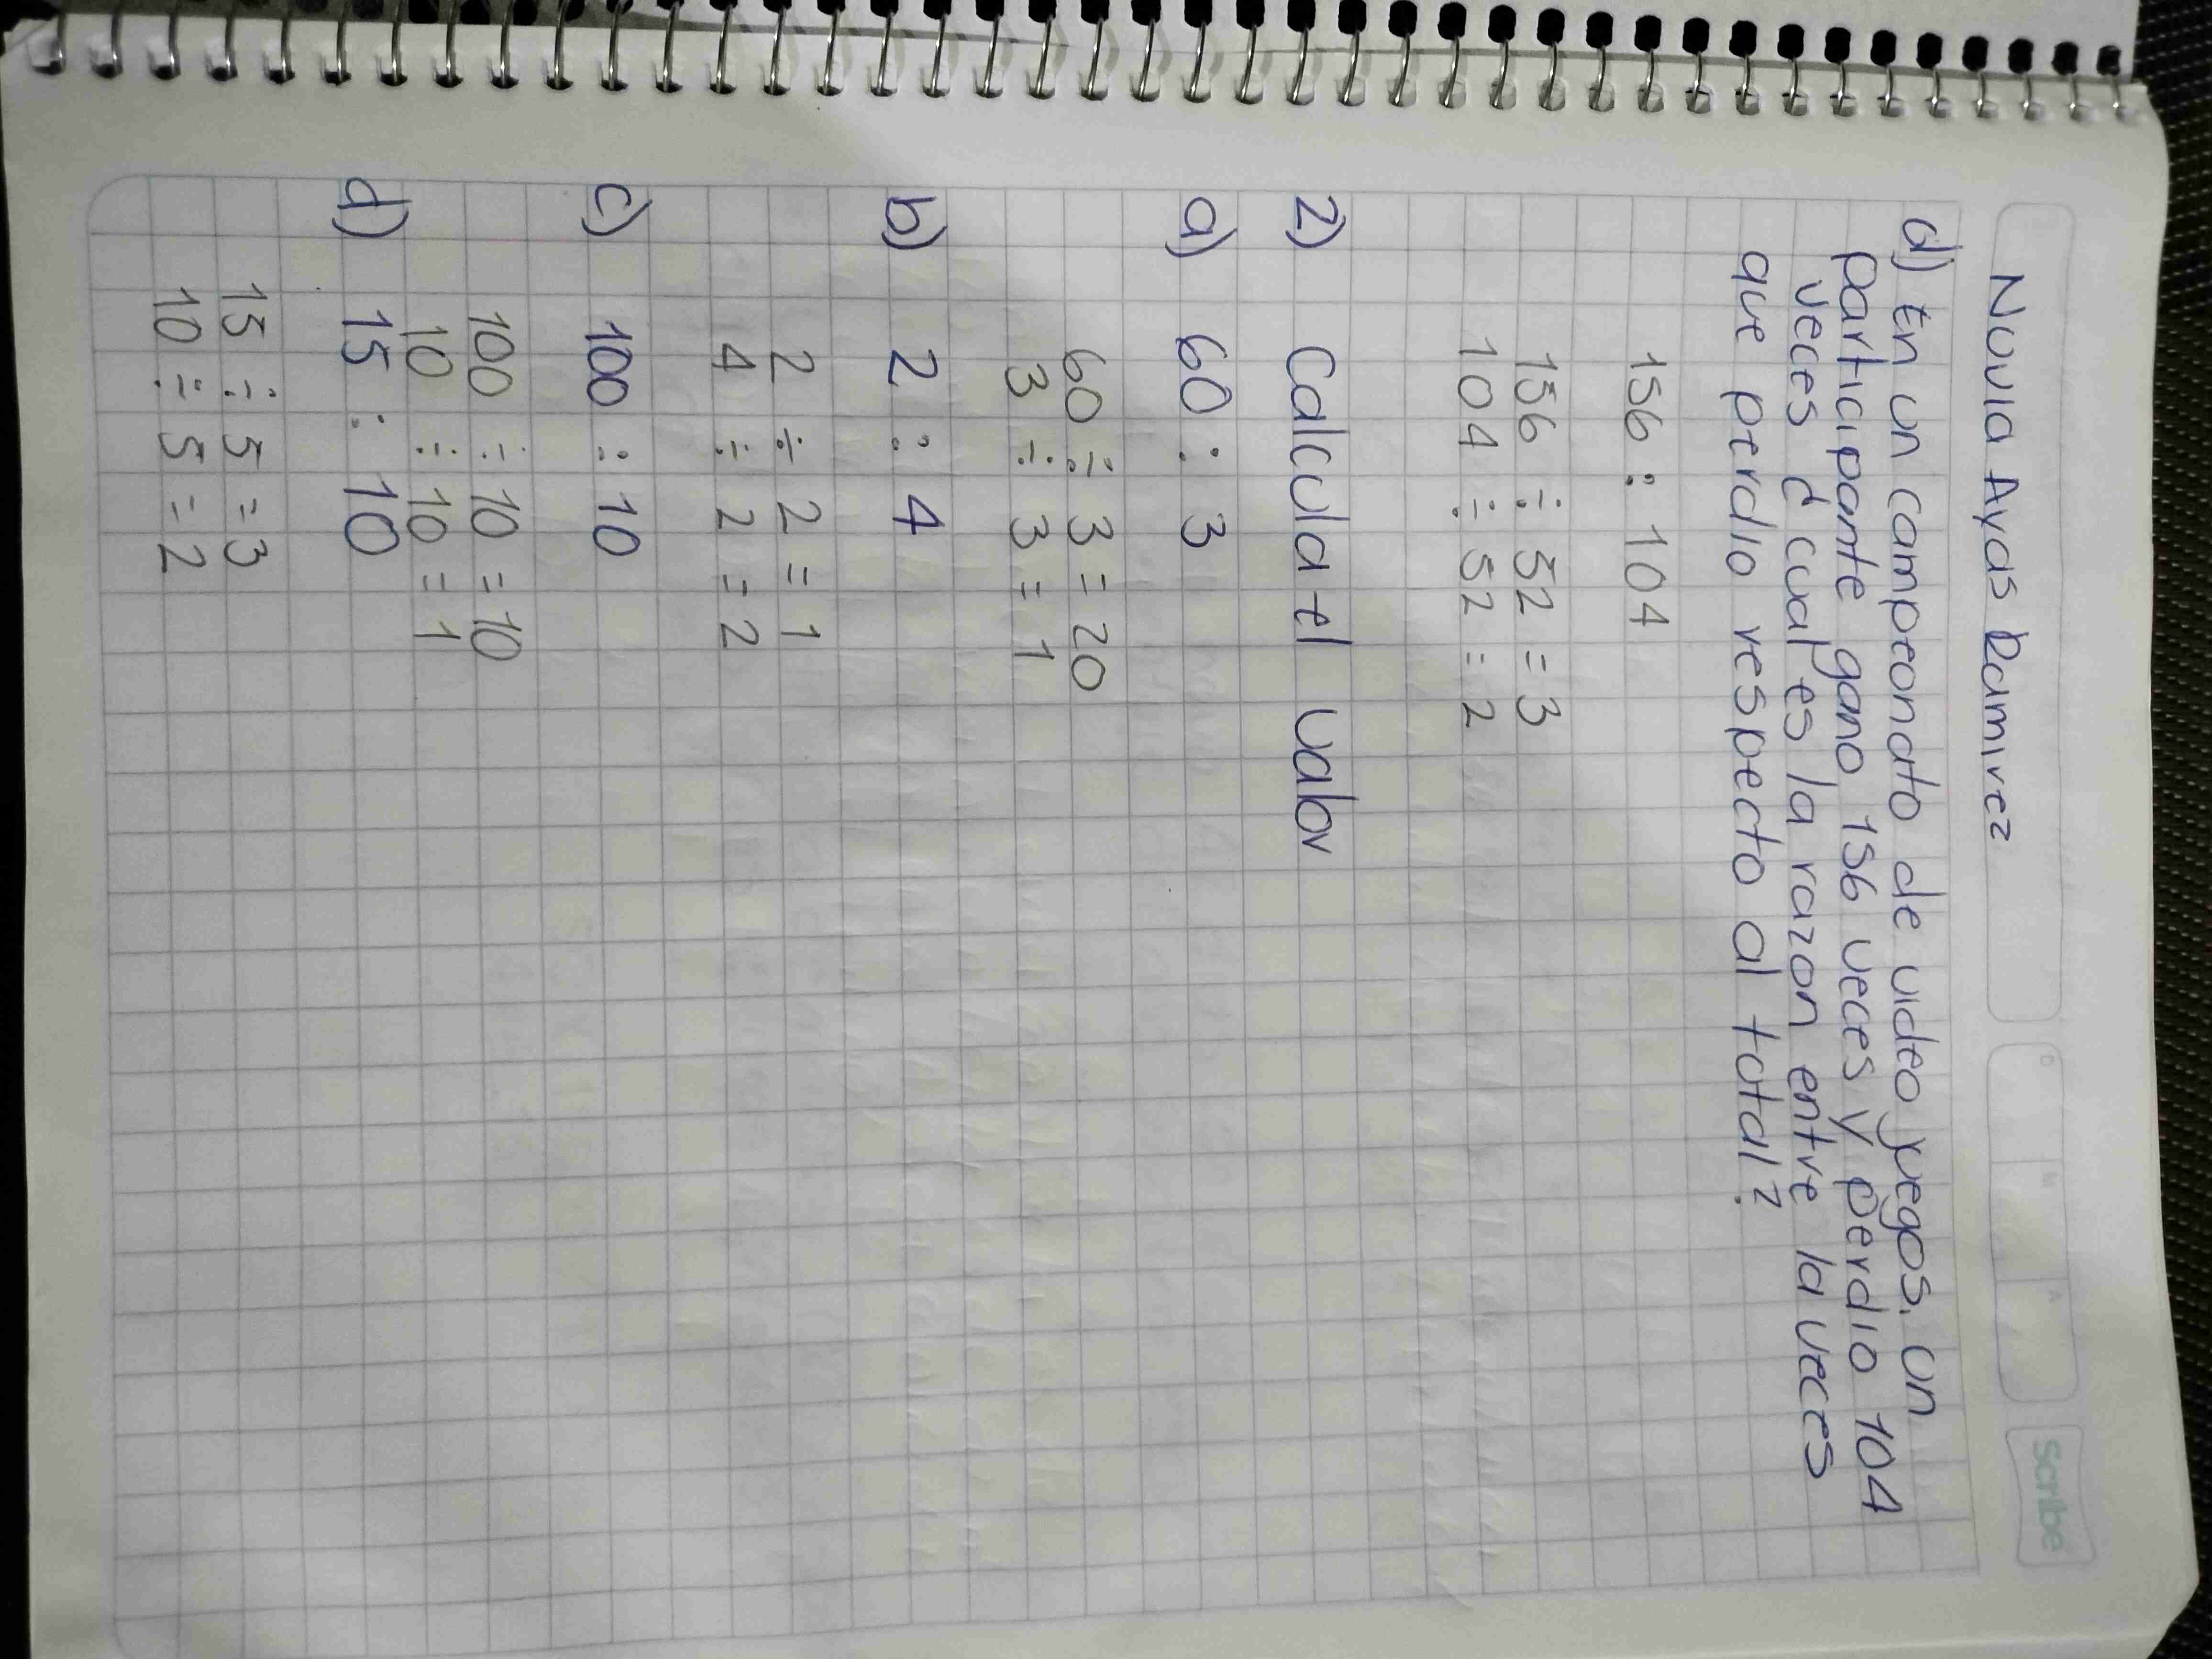 Nuvia Ayas Ramirez
Scribe
d) En un campeonato de video juegos, un
participante gano 156 veces y perdio 104
veces ¿cual es la razon entre la veces
que perdio respecto al total?
156 : 104
156 ÷ 52 = 3
104 ÷ 52 = 2
2) Calcula el valor
a) 60 : 3
60 ÷ 3 = 20
3 ÷ 3 = 1
b) 2 : 4
2 ÷ 2 = 1
4 ÷ 2 = 2
c) 100 : 10
100 ÷ 10 = 10
10 ÷ 10 = 1
d) 15 : 10
15 ÷ 5 = 3
10 ÷ 5 = 2